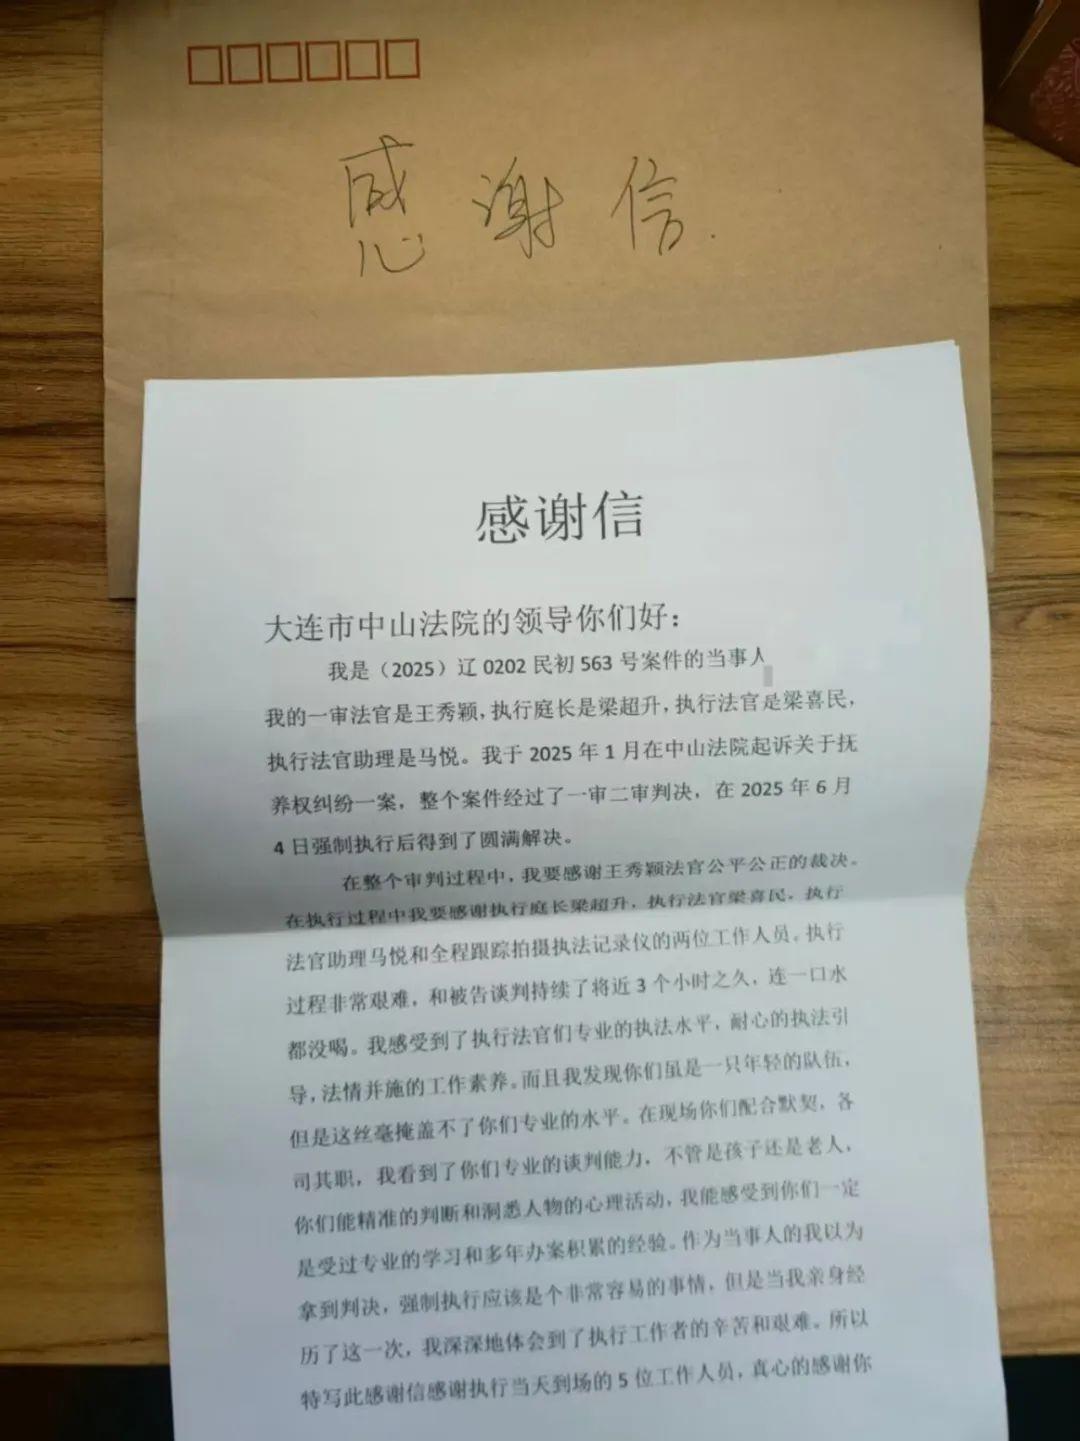 感谢信.
感谢信
大连市中山法院的领导你们好：
我是（2025）辽 0202 民初 563 号案件的当事人
我的一审法官是王秀颖，执行庭长是梁超升，执行法官是梁喜民，
执行法官助理是马悦。我于 2025 年 1 月在中山法院起诉关于抚
养权纠纷一案，整个案件经过了一审二审判决，在 2025 年 6 月
4 日强制执行后得到了圆满解决。
在整个审判过程中，我要感谢王秀颖法官公平公正的裁决。
在执行过程中我要感谢执行庭长梁超升，执行法官梁喜民，执行
法官助理马悦和全程跟踪拍摄执法记录仪的两位工作人员。执行
过程非常艰难，和被告谈判持续了将近 3 个小时之久，连一口水
都没喝。我感受到了执行法官们专业的执法水平，耐心的执法引
导，法情并施的工作素养。而且我发现你们虽是一只年轻的队伍，
但是这丝毫掩盖不了你们专业的水平。在现场你们配合默契，各
司其职，我看到了你们专业的谈判能力，不管是孩子还是老人，
你们能精准的判断和洞悉人物的心理活动，我能感受到你们一定
是受过专业的学习和多年办案积累的经验。作为当事人的我以为
拿到判决，强制执行应该是个非常容易的事情，但是当我亲身经
历了这一次，我深深地体会到了执行工作者的辛苦和艰难。所以
特写此感谢信感谢执行当天到场的 5 位工作人员，真心的感谢你